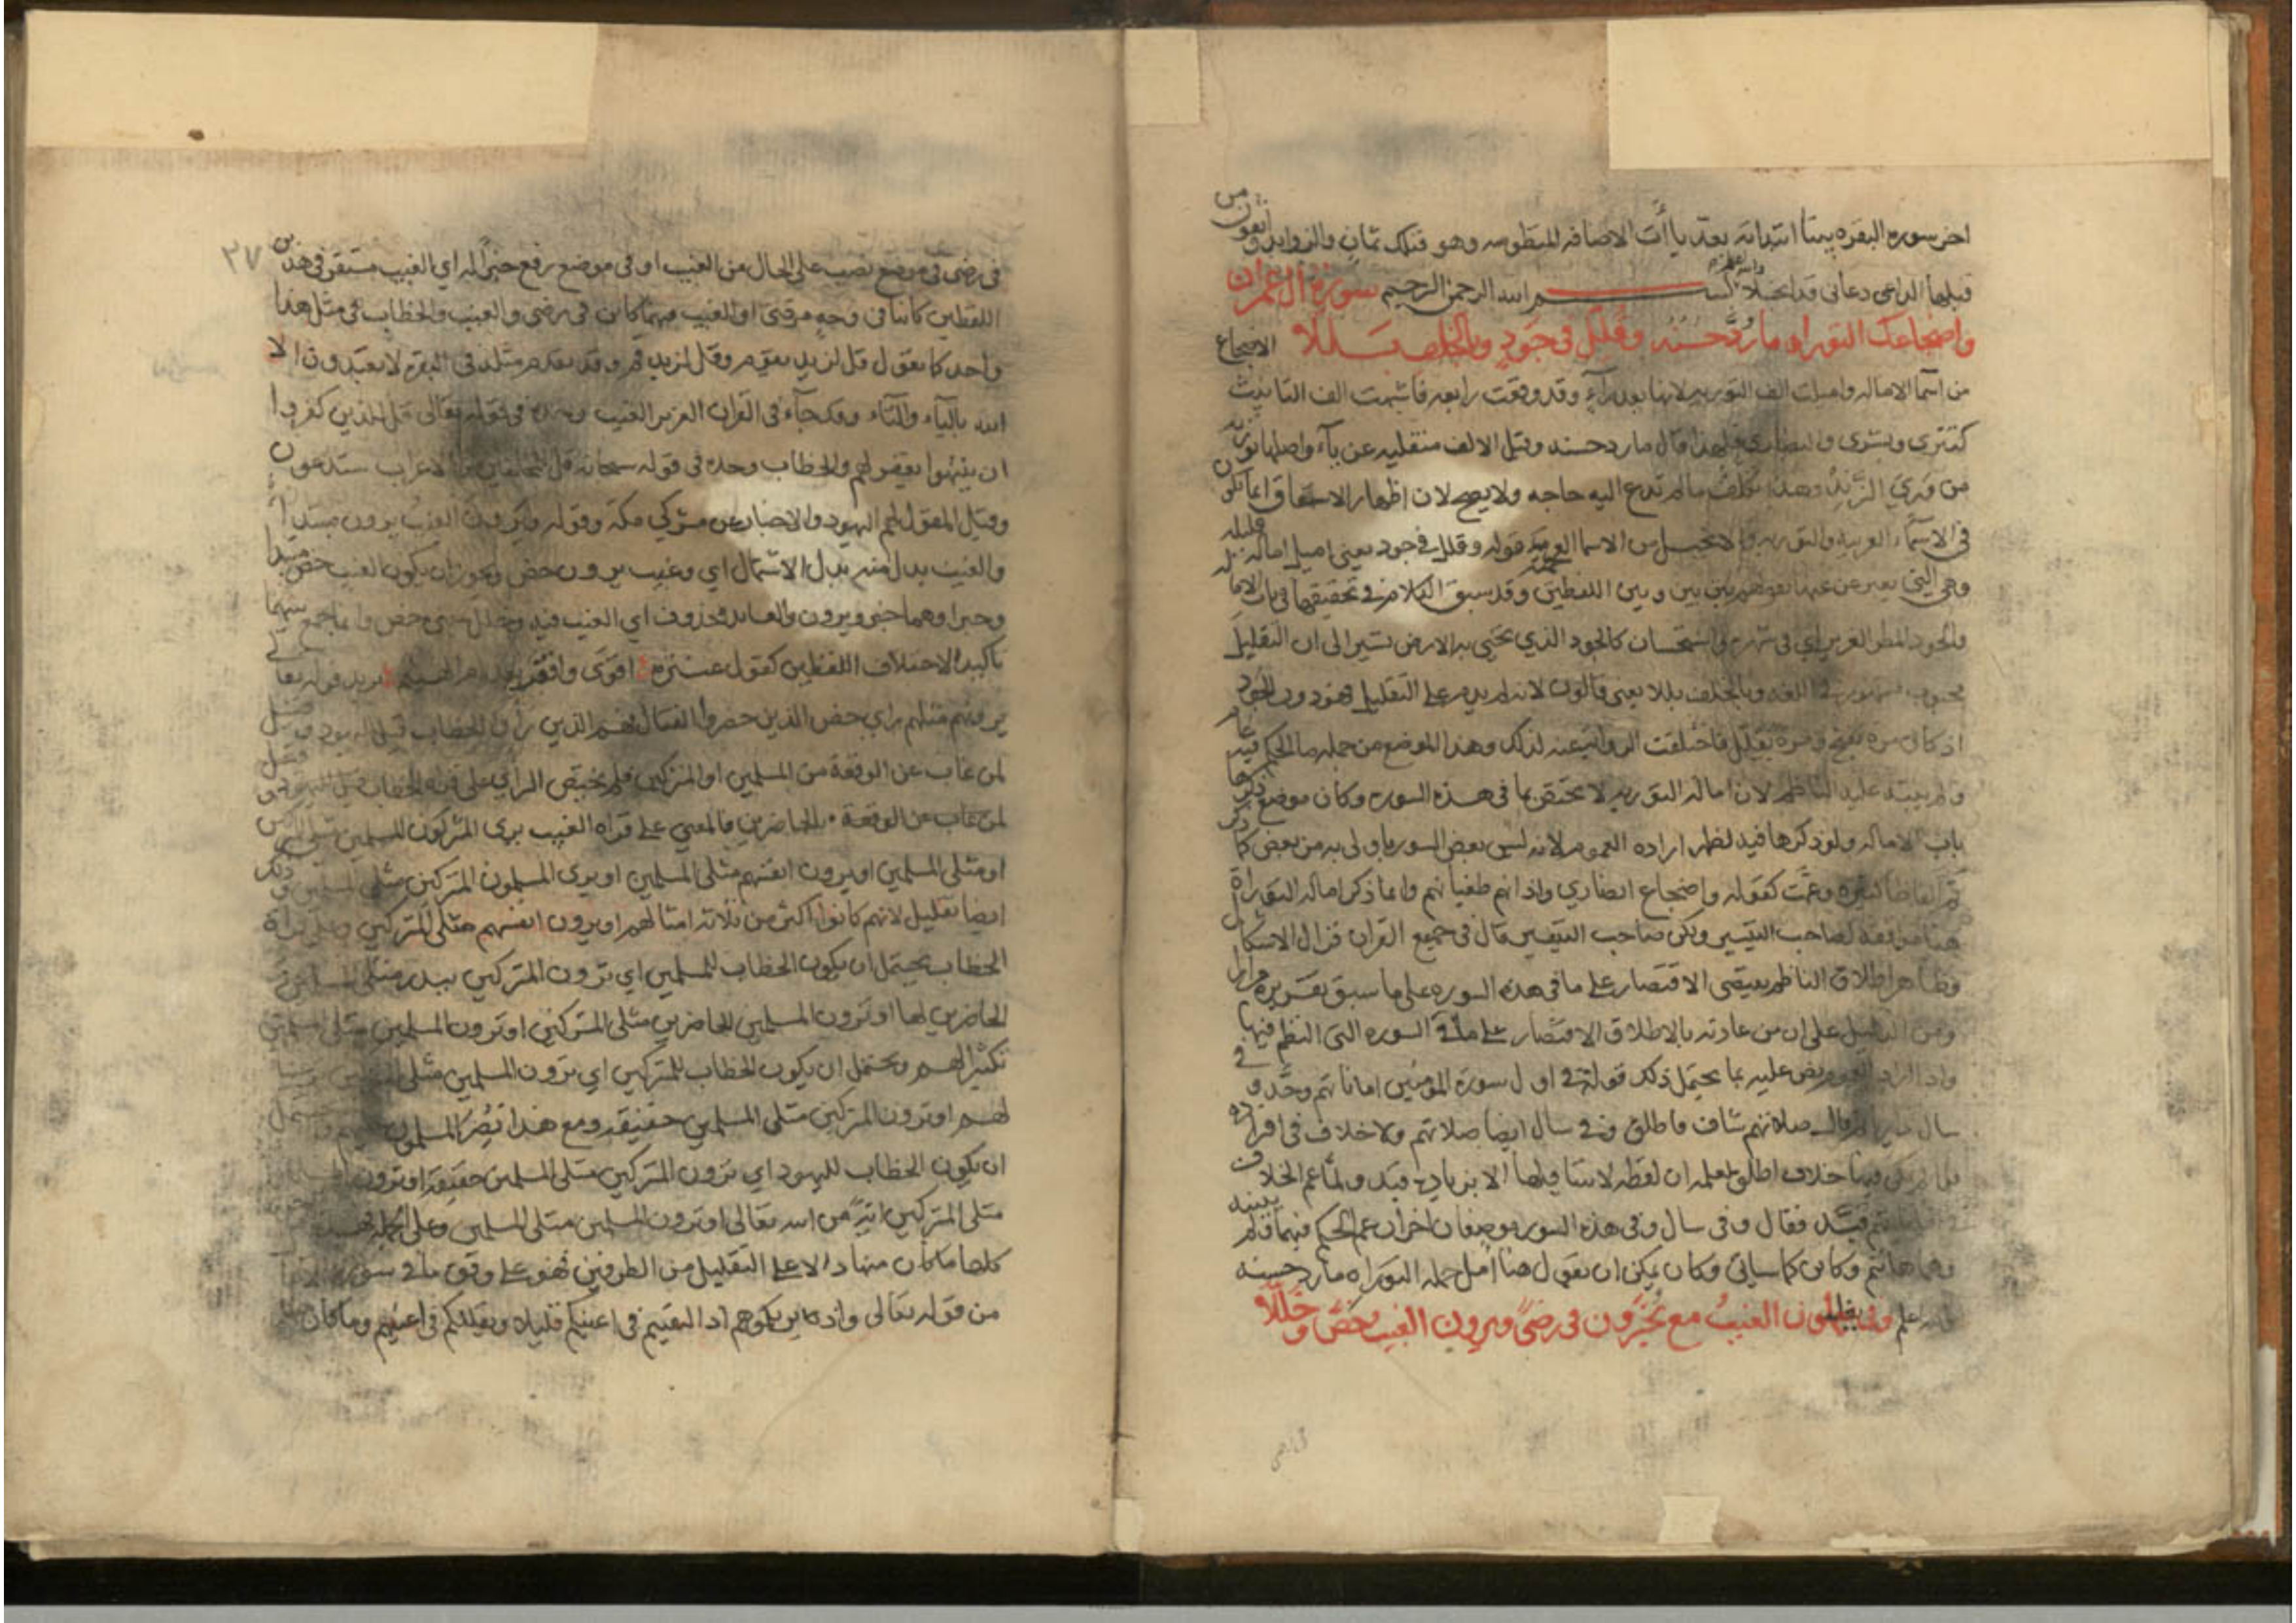 اخر سوره البقره بيتا ابتداته بعد يا أت الاضافه المنظومه وهو فتلك ثمان والزوايد واتقون من
قبلها الداعي دعاني قد انجلا والله اعلم بسم الله الرحمن الرحيم سورة آل عمران
واضجاعك التوراه ما رد حسنه وقلل في جود وبالخلف بللا الاضجاع
من اسما الاماله واميلت الف التوريه لانها بعد راء وقد وقعت رابعه فاشبهت الف التانيث
كتترى وبشرى والنصارى فلهذا قال ما رد حسنه وقيل الالف منقلبه عن ياء واصلها توريه
من وري الزند وهذا تكلف ما لم تدع اليه حاجه ولا يصح لان اظهار الاشتقاق انما يكون
في الاسماء العربيه والتوريه والانجيل من الاسما العجميه قوله وقلل في جود يعني اميل اماله قليله
وهي التي يعبر عنها بقولهم بين بين وبين اللفظين وقد سبق الكلام في تحقيقها في باب الاماله
والجود المطر الغزير اي في شهره واستحسان كالجود الذي يحيى به الارض تشير الى ان التقليل
محبوب مشهور في اللغه وبالخلف بللا يعني قالون لانه لم يدم على التقليل فهو دون الجود
اذ كان مره يفتح ومره يقلل فاختلفت الروايه عنه لذلك وهذا الموضع من جمله ما الحكم فيه عام
ولم ينبه عليه الناظم لان اماله التوريه لا تختص بما في هذه السوره وكان موضع ذكرها
باب الاماله ولو ذكرها فيه لظهر اراده العموم لانه ليس بعض السور باولى به من بعض كما ذكر
ثم الفاظا كثيره وعمت كقوله واضجاع انصاري واذانهم طغيانهم وانما ذكر اماله التوراة
هنا موافقه لصاحب التيسير ولكن صاحب التيسير قال في جميع القران فزال الاشكال
وظاهر اطلاق الناظم يقتضي الاقتصار على ما في هذه السوره على ما سبق تقريره مرارا
ومن الدليل على ان من عادته بالاطلاق الاقتصار على ما في السوره التي النظم فيها
واذا اراد العموم نص عليه بما يحتمل ذلك قوله في اول سورة المومنين اماناتهم وحد وفي
سال داريا ثم قال صلاتهم شاف فاطلق وفي سال ايضا صلاتهم ولا خلاف في افراده
فلما لم يكن فيها خلاف اطلق لعلمه ان لفظه لا يتناولها الا بزيادة قيد ولما عم الخلاف
في اماناتهم قيد فقال وفي سال وفي هذه السوره موضعان اخران عم الحكم فيهما ولم يبينه
وهما هاانتم وكاين كما سياتي وكان يمكن ان يقول هنا امل جمله التوراه ما رد حسنه
والله اعلم وفي تغلبون الغيب مع تحشرون في رضى ويرون الغيب خص وخللا
٣٧
في رضى في موضع نصب على الحال من الغيب او في موضع رفع خبرا له اي الغيب مستقر في هذين
اللفظين كائنا في وجه مرضى او الغيب فيهما كائن في رضى والغيب والخطاب في مثل هذا
واحد كما تقول قل لزيد يقوم وقل لزيد قم وقد تقدم مثله في البقره لا تعبدون الا
الله بالياء والتاء وقد جاء في القران العزيز الغيب وحده في قوله تعالى قل للذين كفروا
ان ينتهوا يغفر لهم والخطاب وحده في قوله سبحانه قل للمخلفين من الاعراب ستدعون
وقيل المقول لهم اليهود والاخبار عن مشركي مكة وقوله ويرون الغيب يرون مبتدأ
والغيب بدل منه بدل الاشتمال اي وغيب يرون خص ويجوز ان يكون الغيب خص مبتدا
وخبرا وهما خبر ويرون والعايد محذوف اي الغيب فيه وخلل بمعنى خص وانما جمع بينهما
تاكيدا لاختلاف اللفظين كقول عنترة اقوى واقفر بعد ام الهيثم يريد قوله تعالى
يرونهم مثليهم راي خص الذين حضروا القتال فهم الذين راوا للخطاب قيل لليهود وقيل
لمن غاب عن الوقعة من المسلمين او المشركين فلم يختص الراي على قراه الخطاب
لمن غاب عن الوقعة بالحاضرين فالمعنى على قراه الغيب يرى المشركون المسلمين مثلي المشركين
او مثلي المسلمين او يرون انفسهم مثلي المسلمين او يرى المسلمون المشركين مثلي المسلمين وذلك
ايضا تقليل لانهم كانوا اكثر من ثلاثة امثالهم او يرون انفسهم مثلي المشركين وعلى قراة
الخطاب يحتمل ان يكون الخطاب للمسلمين اي ترون المشركين ببدر مثلي المسلمين
الحاضرين لها او ترون المسلمين الحاضرين مثلي المشركين او ترون المسلمين مثلي المسلمين
تكثيرا لهم ويحتمل ان يكون الخطاب للمشركين اي ترون المسلمين مثلي
لهم او ترون المشركين مثلي المسلمين حقيقة ومع هذا نصر المسلمون
ان يكون الخطاب لليهود اي ترون المشركين مثلي المسلمين حقيقة او ترون
مثلي المشركين اية من الله تعالى او ترون المسلمين مثلي المسلمين وعلى الجمله فهذه
كلها ما كان منها دالا على التقليل من الطرفين فهو على وفق ما في سورة
من قوله تعالى واذ يريكموهم اذ التقيتم في اعينكم قليلا ويقللكم في اعينهم وما كان